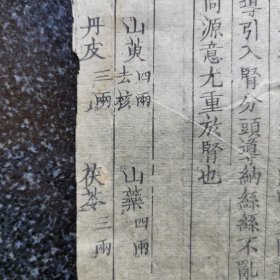 導引入腎分頭導納絲絲不亂
同源意尤重於腎也
山萸去核四兩 山藥四兩
丹皮三兩 茯苓三兩